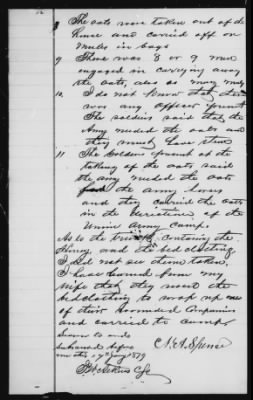 8 The oats were taken out of the
house and carried off on
mules in bags
9 There was 8 or 9 men
engaged in carrying away
the oats, also as many mules
10. I do not know that there
was any officer present
The soldiers said that the
Army needed the oats and
they must have them
11 The Soldiers present at the
taking of the oats said
the army needed the oats
for the army horses
and they carried the oats
in the direction of the
Union Army Camp.
As to the containing the
Honey, and bedclothing,
I did not see them taken.
I have learned from my
wife that they used the
bedclothing to wrap up one
of their wounded Companions
and carried to camp
Sworn to and
subscribed before
me this 17th Jany 1879
N. A. Spence